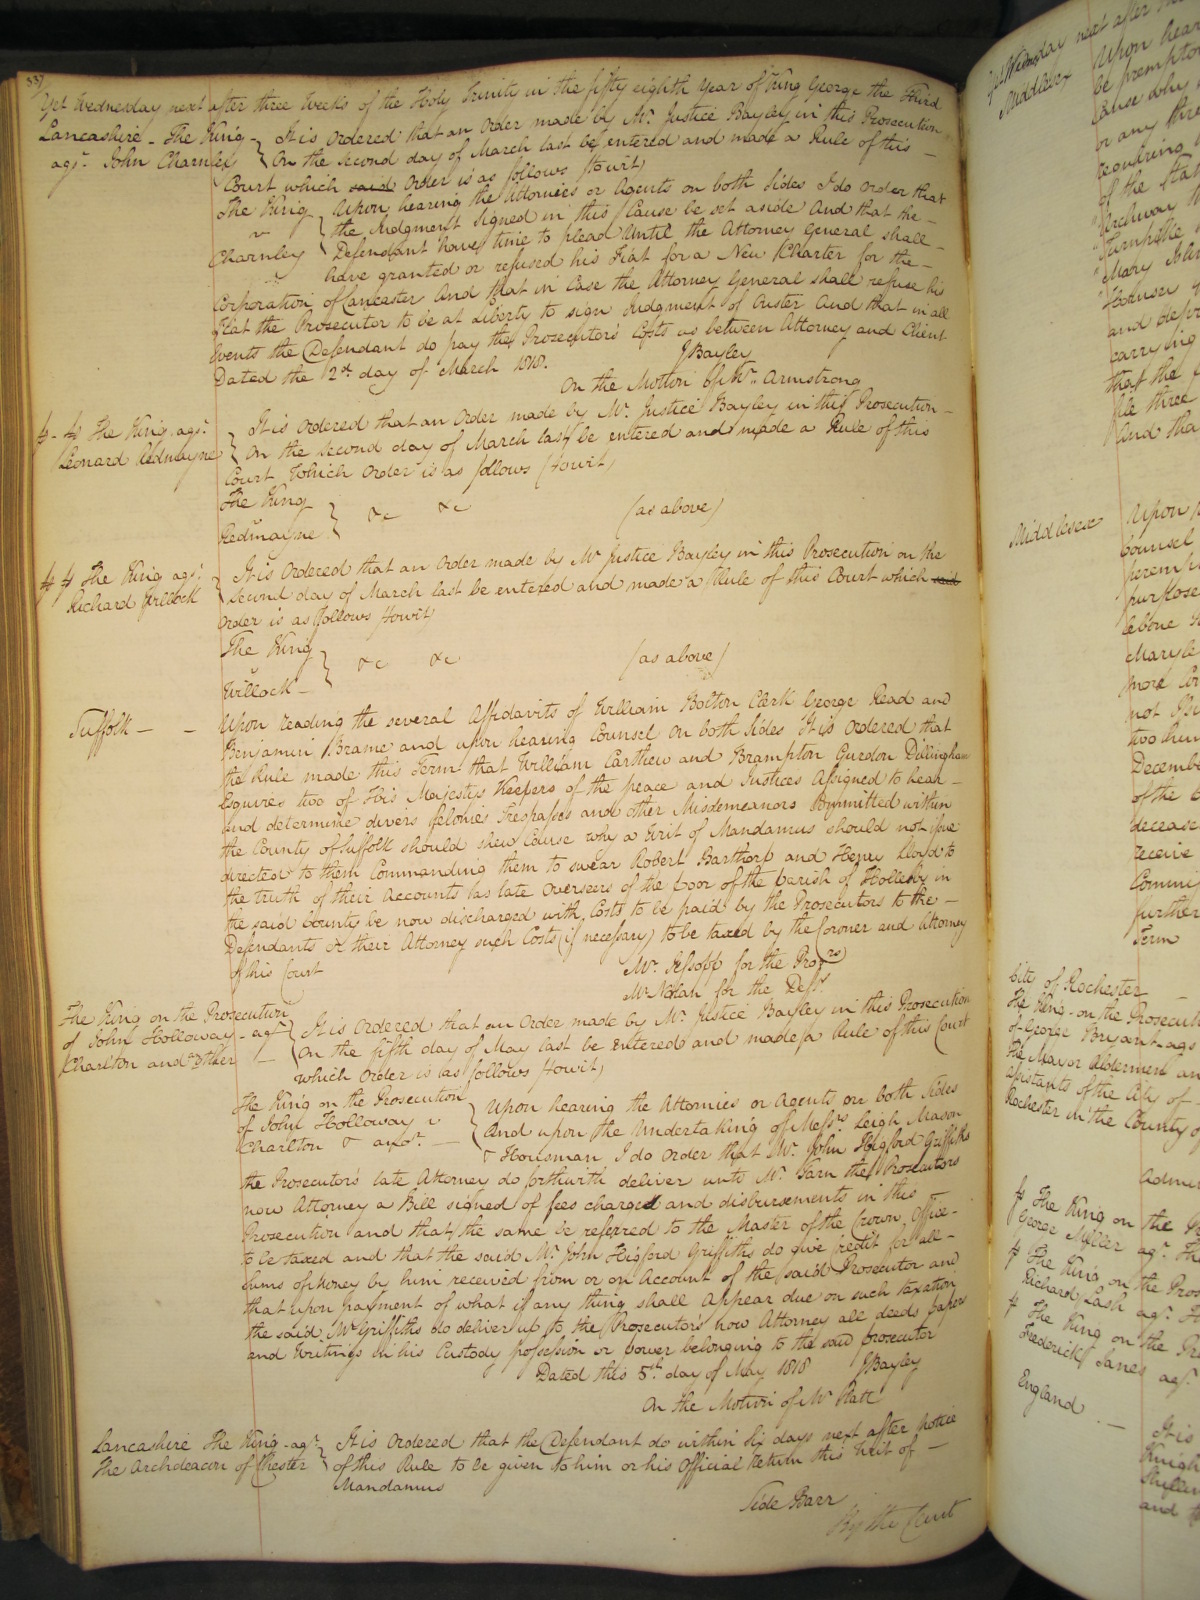 337
Yet Wednesday next after three Weeks of the Holy Trinity in the fifty eighth Year of King George the Third
Lancashire - The King
agst. John Charnley
It is Ordered that an Order made by Mr. Justice Bayley in this Prosecution
On the Second day of March last be entered and made a Rule of this -
Court which said Order is as follows (towit)
The King
v
Charnley
Upon hearing the Attornies or Agents on both Sides I do Order that
the Judgment Signed in this Cause be set aside And that the -
Defendant have time to plead Until the Attorney General shall -
have granted or refused his Fiat for a New Charter for the -
Corporation of Lancaster And that in Case the Attorney General shall refuse his
Fiat the Prosecutor to be at Liberty to sign Judgment of Ouster And that in all
Events the Defendant do pay the Prosecutors Costs as between Attorney and Client
Dated the 2nd. day of March 1818.
J Bayley
On the Motion of Mr. Armstrong
The King agst.
Leonard Redmayne
It is Ordered that an Order made by Mr. Justice Bayley in this Prosecution -
On the Second day of March last be entered and made a Rule of this
Court Which Order is as follows (towit)
The King
v
Redmayne
&c &c (as above)
The King agst.
Richard Willock
It is Ordered that an Order made by Mr Justice Bayley in this Prosecution on the
Second day of March last be entered and made a Rule of this Court which said
Order is as follows towit
The King
v
Willock -
&c &c (as above)
Suffolk - -
Upon reading the several Affidavits of William Bolton Clerk George Read and
Benjamin Brame and upon hearing Counsel on both Sides It is Ordered that
the Rule made this Term that William Carthew and Brampton Gurdon Dillingham
Esquires two of His Majestys Keepers of the peace and Justices Assigned to hear -
and determine divers felonies Trespasses and other Misdemeanors Committed within
the County of Suffolk should shew Cause why a Writ of Mandamus should not issue
directed to them Commanding them to swear Robert Barthorp and Henry Lloyd to
the truth of their Accounts as late Overseers of the Poor of the parish of Hollesby in
the said County be now discharged with Costs to be paid by the Prosecutors to the -
Defendants or their Attorney such Costs (if necessary) to be taxed by the Coroner and Attorney
of this Court
Mr. Jessopp for the Prors
Mr Nolan for the Defts.
The King on the Prosecution
of John Holloway - agst
Charlton and other -
It is Ordered that an Order made by Mr. Justice Bayley in this Prosecution
On the fifth day of May last be entered and made a Rule of this Court
which Order is as follows towit)
The King on the Prosecution
of John Holloway v
Charlton & anor. -
Upon hearing the Attornies or Agents on both Sides
And upon the Undertaking of Messrs Leigh Mason
& Housman I do Order that Mr. John Higford Griffiths
the Prosecutors late Attorney do forthwith deliver unto Mr. Tarn the Prosecutors
now Attorney a Bill signed of fees charged and disbursements in this
Prosecution and that the same be referred to the Master of the Crown Office -
to be taxed and that the said Mr. John Higford Griffiths do give Credit for all -
Sums of Money by him received from or on Account of the said Prosecutor and
that upon payment of what if any thing shall Appear due on such taxation
the said Mr Griffiths do deliver up to the Prosecutors now Attorney all deeds papers
and Writings in his Custody possession or power belonging to the said prosecutor
Dated this 5th. day of May 1818
J Bayley
On the Motion of Mr Platt
Lancashire The King agst.
The Archdeacon of Chester
It is Ordered that the Defendant do within Six days next after Notice
of this Rule to be given to him or his Official Return this Writ of -
Mandamus
Side Barr
By the Court
Yet Wednesday next after
Middlesex
Upon hear
be premptor
Cause why
or any thre
requiring
of the Stat
Archway
Turnpike
Mary
and
carrying
that the
file three
And tha
Middlesex
Upon
Counsel
perem
purpose
lebone
Maryle
more
not
two hun
December
of the
decease
receive
Commi
further
Term
City of Rochester
The King - on the Prosecuti
of George Bryant - ags
The Mayor Aldermen an
assistants of the City of -
Rochester in the County of
The King on the
George Miller agst. The
The King on the Pros
Richard Cash agst.
The King on the Pro
Frederick Janes agst.
England . -
It is
Knigh
and